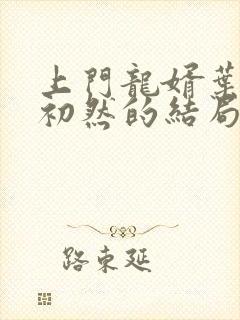 上門龍婿葉
初然的結局
路東延